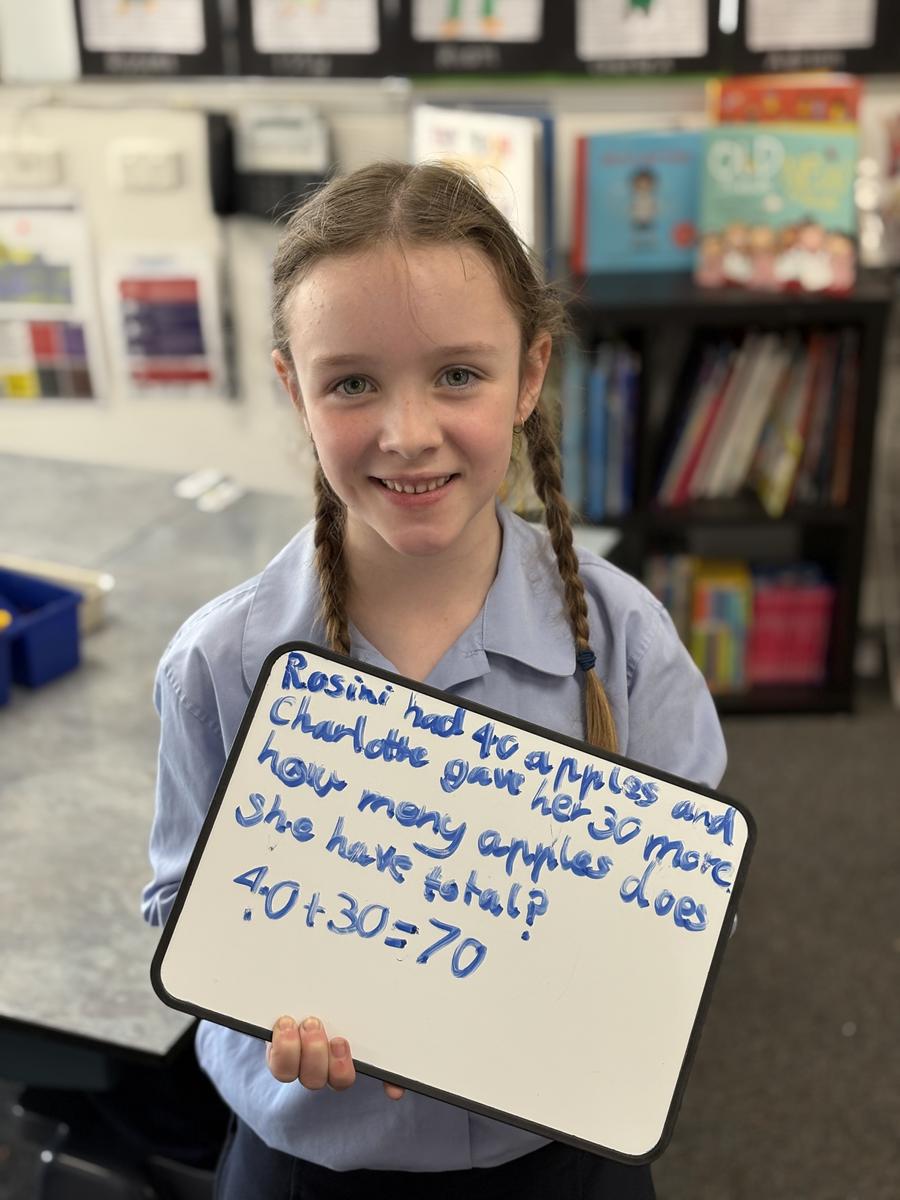 Rosini had 40 apples and
Charlotte gave her 30 more
how meny apples does
she have total?
40+30=70